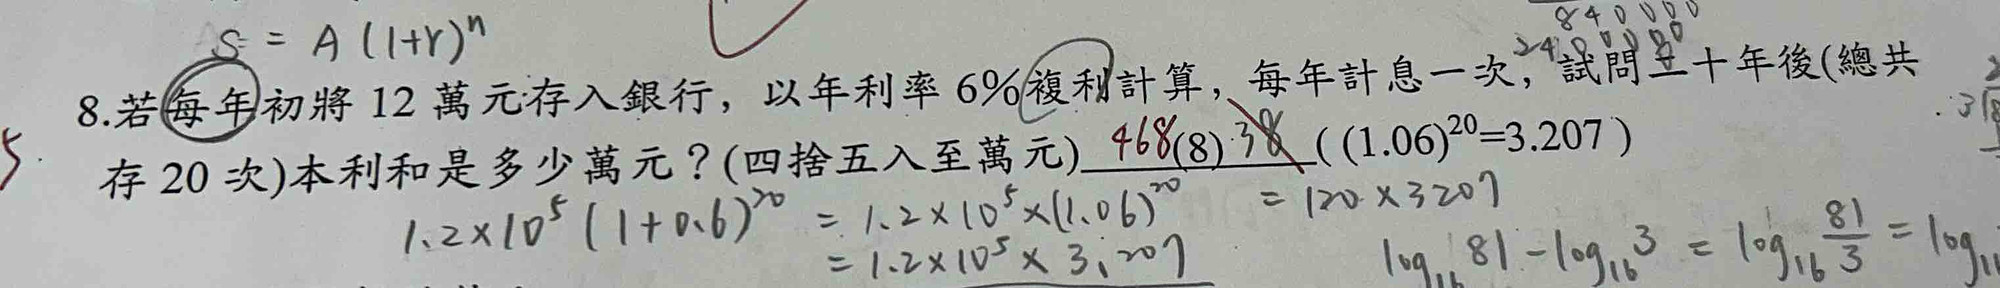 840000
240000
S = A (1+r)ⁿ
8.若每年初將 12 萬元存入銀行，以年利率 6%複利計算，每年計息一次，試問二十年後(總共
5
存 20 次)本利和是多少萬元？(四捨五入至萬元) 468(8) 38 ( (1.06)²⁰=3.207 )
1.2×10⁵ (1+0.6)²⁰ = 1.2×10⁵×(1.06)²⁰ = 120×3207
= 1.2×10⁵ × 3.207
log₁₆ 81 - log₁₆ 3 = log₁₆ 81/3 = log